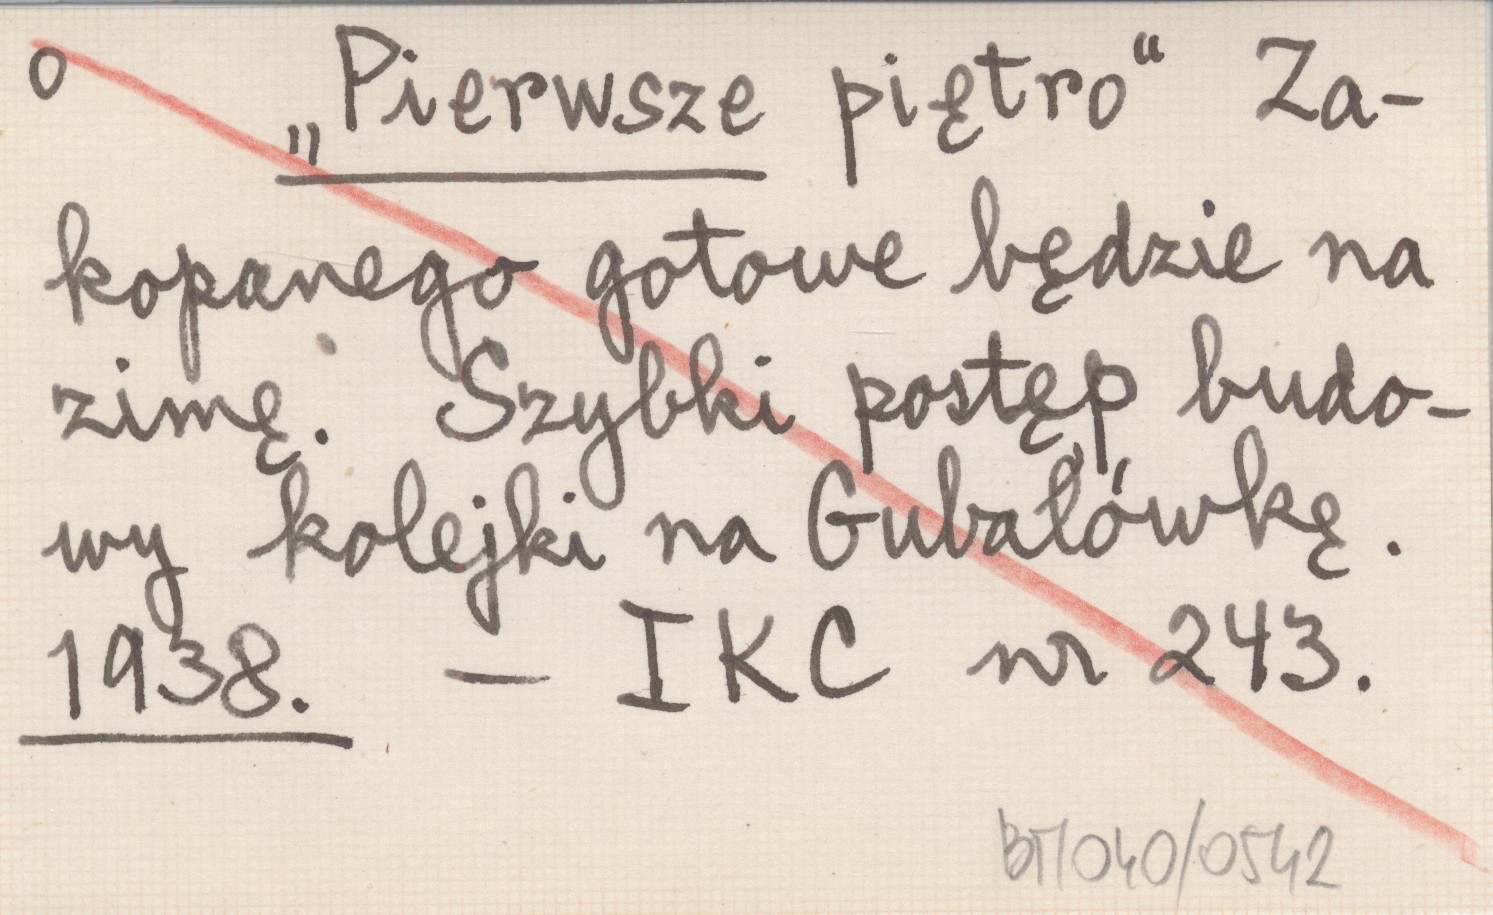 o „Pierwsze piętro“ Za-
kopanego gotowe będzie na
zimę. Szybki postęp budo-
wy kolejki na Gubałówkę.
1938. — IKC nr 243.
BT/040/0542